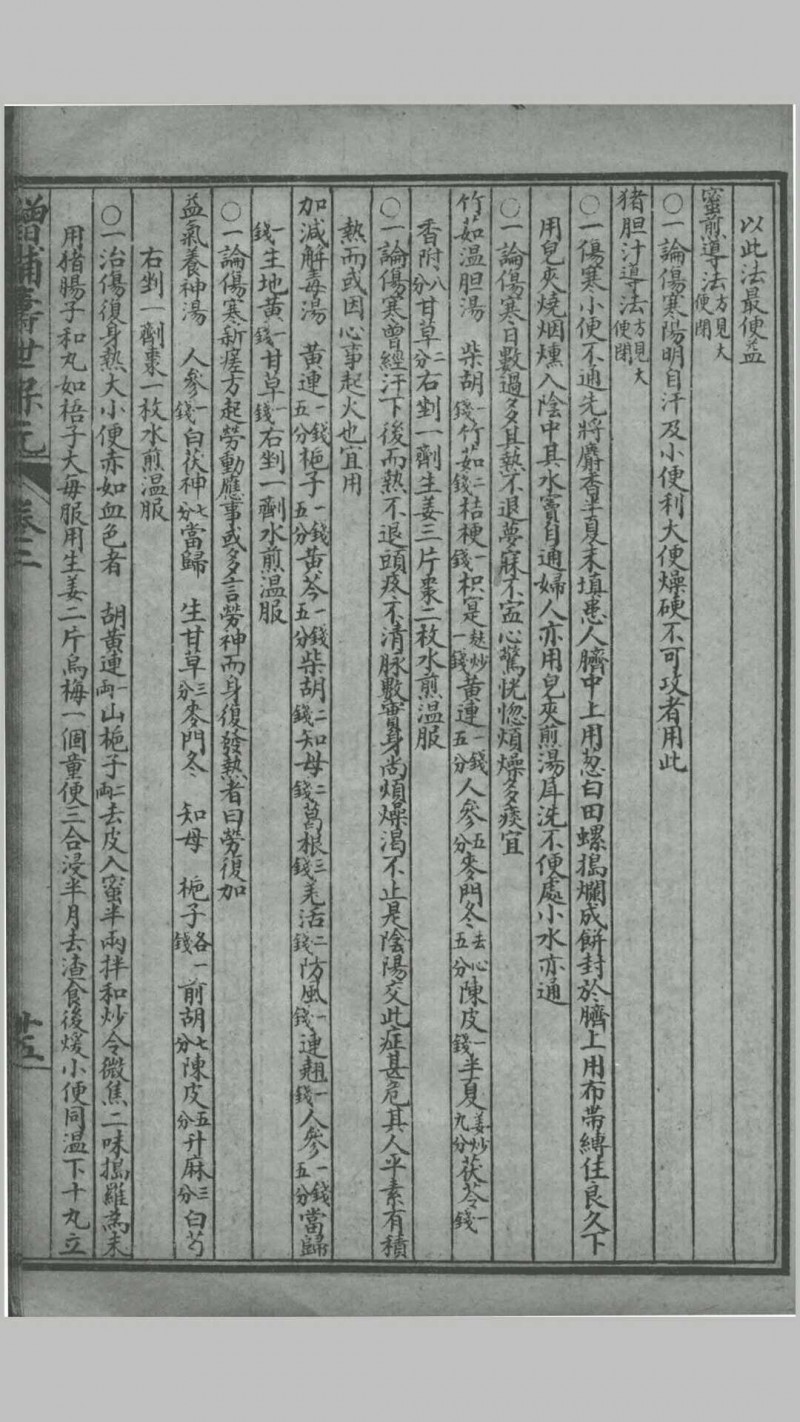 以此法最便益
蜜煎導法方見大便閉
○一論傷寒陽明自汗及小便利大便燥硬不可攻者用此
猪胆汁導法方見大便閉
○一傷寒小便不通先將麝香半夏末填患人臍中上用葱白田螺搗爛成餅封於臍上用布帶縛住良久下
用皂夾燒烟燻入陰中其水竇自通婦人亦用皂夾煎湯耳洗不便處小水亦通
○一論傷寒日數過多其熱不退夢寐不寍心驚恍惚煩燥多痰宜
竹茹温胆湯　柴胡一錢竹茹二錢桔梗一錢枳寔麩炒一錢黃連一錢五分人參五分麥門冬去心五分陳皮一錢半夏姜炒九分茯苓一錢
香附八分甘草二分右剉一劑生姜三片棗二枚水煎温服
○一論傷寒曾經汗下後而熱不退頭疼不清脉數實身尚煩燥渴不止是陰陽交此症甚危其人平素有積
熱而或因心事起火也宜用
加減解毒湯　黃連一錢五分梔子一錢五分黃芩一錢五分柴胡二錢知母二錢葛根三錢羌活二錢防風一錢連翹一錢人參一錢五分當歸
一錢生地黃一錢甘草一錢右剉一劑水煎温服
○一論傷寒新瘥方起勞動應事或多言勞神而身復發熱者曰勞復加
益氣養神湯　人參一錢白茯神七分當歸　生甘草三分麥門冬　知母　梔子各一錢前胡七分陳皮五分升麻三分白芍
右剉一劑棗一枚水煎温服
○一治傷復身熱大小便赤如血色者　胡黃連一兩山梔子二兩去皮入蜜半兩拌和炒令微焦二味搗羅為末
用猪腸子和丸如梧子大每服用生姜二片烏梅一個童便三合浸半月去渣食後煖小便同温下十丸立
增補壽世保元　卷三　廿五